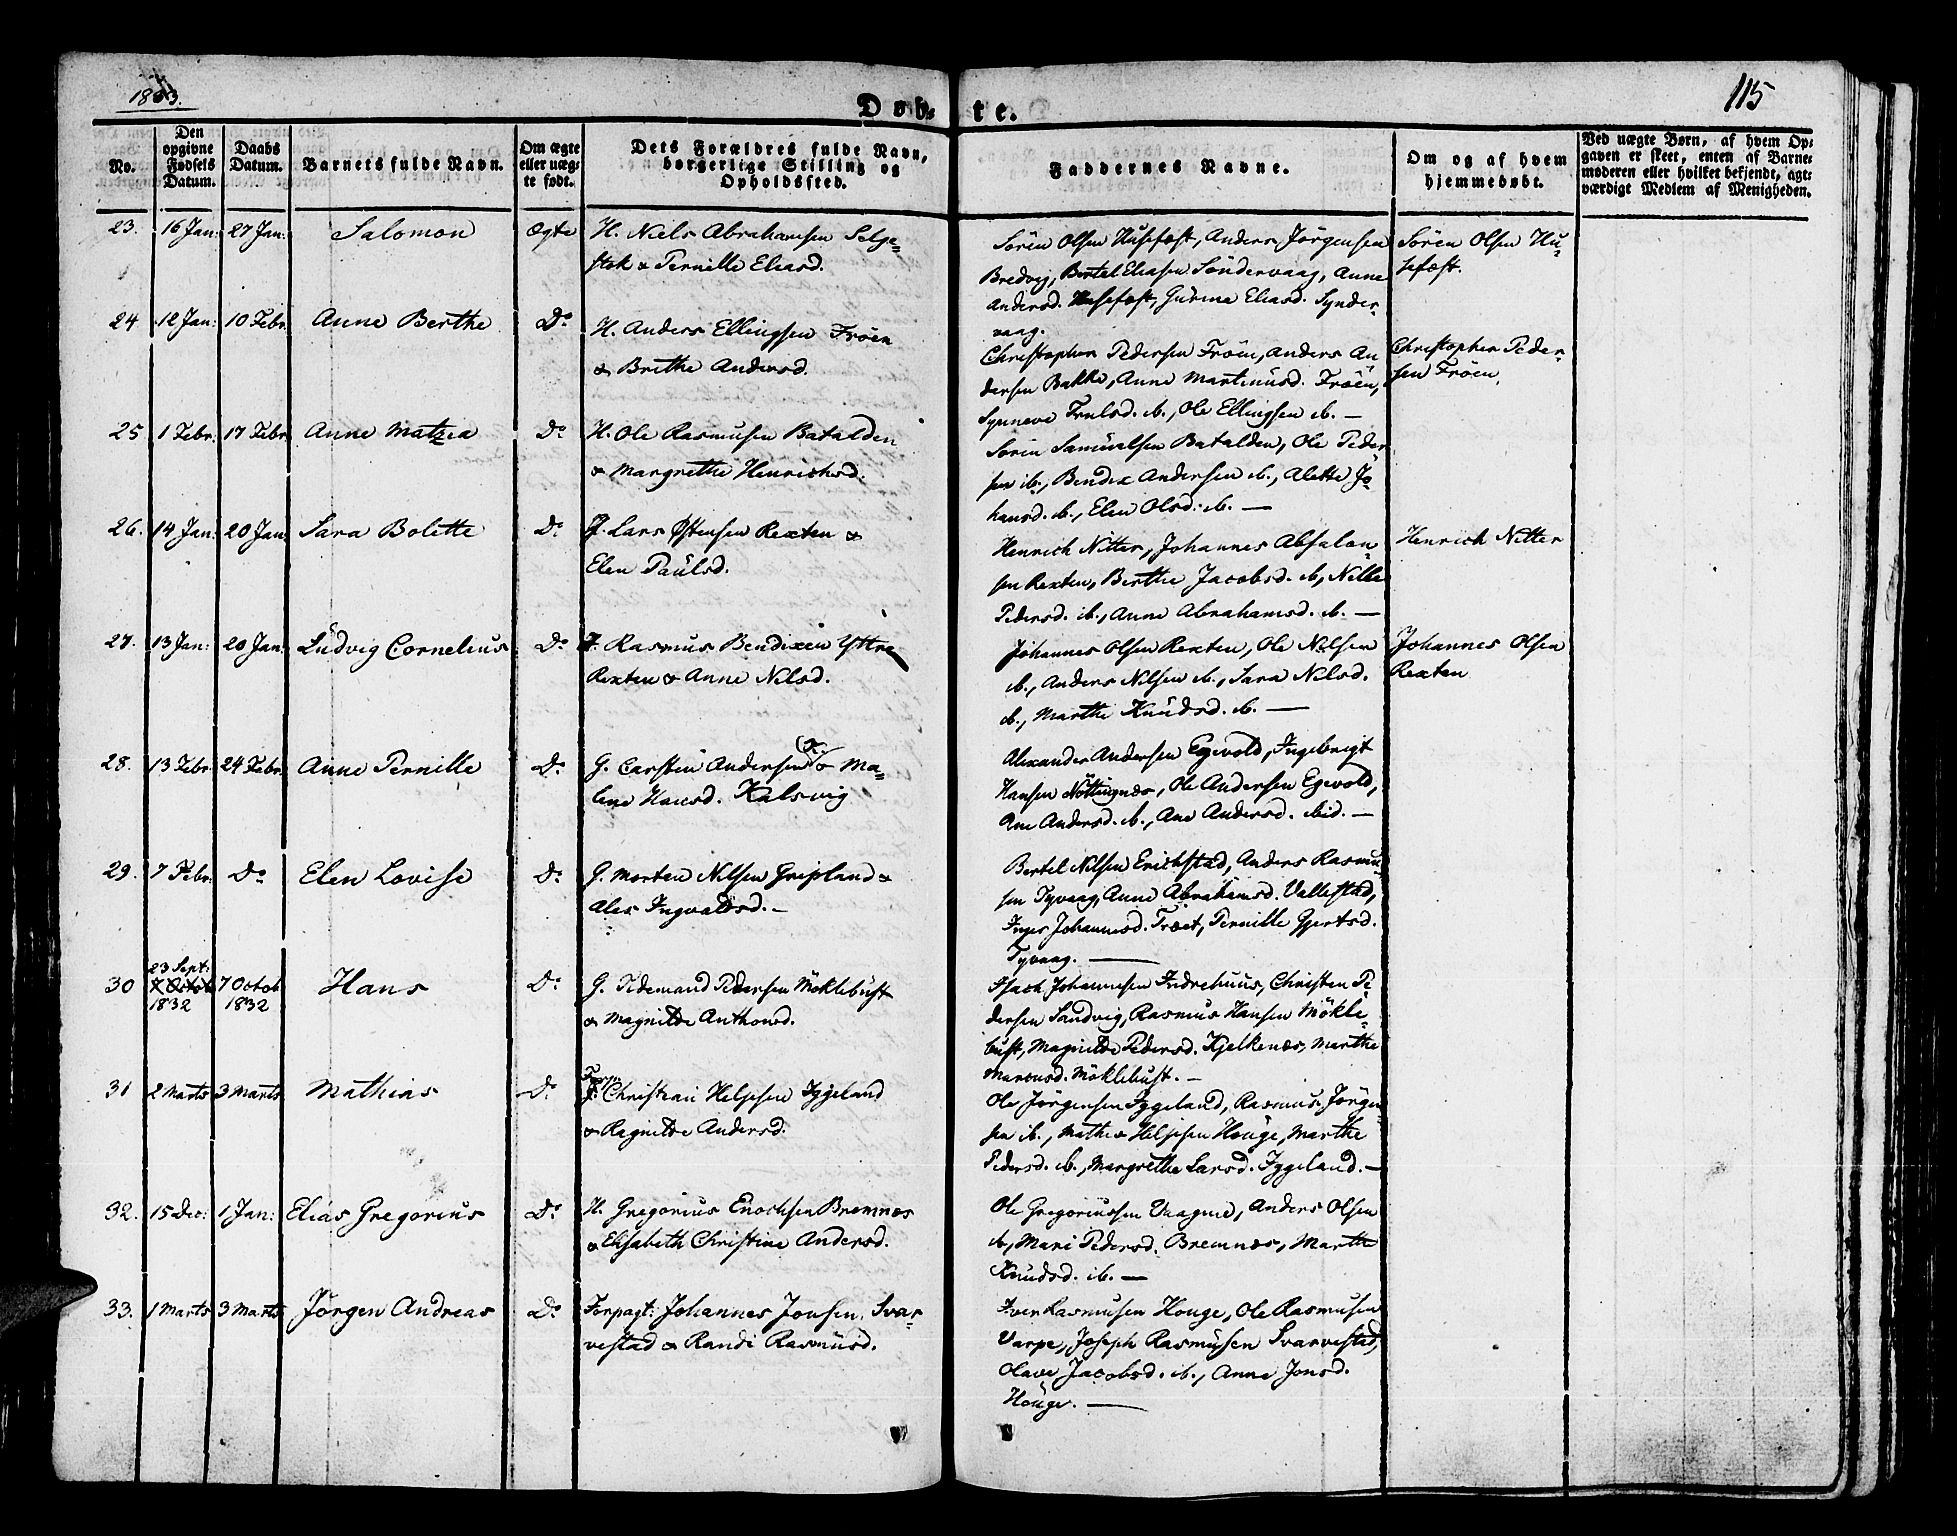 1833.
115
Døbte.
No.
Den opgivne Fødsels Datum.
Daabs Datum.
Barnets fulde Navn.
Om ægte eller uægte født.
Dets Forældres fulde Navn, borgerlige Stilling og Opholdssted.
Faddernes Navne.
Om og af hvem hjemmedøbt.
Ved uægte Børn, af hvem Opgaven er skeet, enten af Barnemoderen eller hvilket bekjendt, agtværdigt Medlem af Menigheden.
23. 16 Jan: 27 Jan: Salomon ægte
H. Niels Abrahamsen Selje-
stok & Pernille Eliasd.
Sören Olsen Husefæst, Anders Jörgensen
Bredvig, Bertel Eliasen Söndervaag, Anne
Andersd. Husefæst, Gurine Eliasd. Synder-
vaag.
Sören Olsen Hu-
sefæst.
24 12 Jan: 10 Febr. Anne Berthe Do
H. Anders Ellingsen Fröen
& Brithe Andersd.
Christopher Pedersen Fröen, Anders An-
dersen Bakke, Anne Martinusd. Fröen,
Synneve Trulsd. ib., Ole Ellingsen ib. —
Christopher Peder-
sen Fröen.
25 1 Febr: 17 Febr. Anne Matzea Do
H. Ole Rasmusen Batalden
& Margrethe Henrichsd.
Sören Samuelsen Batalden, Ole Peder-
sen ib., Bendix Andersen ib., Alette Jo-
hansd. ib., Elen Olsd. ib. —
26. 14 Jan: 20 Jan. Sara Bolette Do
J. Lars Østensen Rexten &
Elen Paulsd.
Henrich Nitter, Johannes Absalon-
sen Rexten, Berthe Jacobsd. ib, Nille
Pedersd. ib., Anne Abrahamsd. ib. —
Henrich Nitter
27. 13 Jan: 20 Jan: Ludvig Cornelius Do
J. Rasmus Bendixen Yttre
Rexten & Anne Nilsd.
Johannes Olsen Rexten, Ole Nilsen
ib., Anders Nilsen ib., Sara Nilsd.
ib., Marthe Knudsd. ib. —
Johannes Olsen
Rexten
28. 13 Febr. 24 Febr. Anne Pernille Do
G. Carsten Andersen & Ma-
lene Hansd. Kalsvig
Alexander Andersen Egevold, Ingebrigt
Hansen Nöttingnes, Ole Andersen Egevold,
Ane Andersd. ib., Ane Andersd. ibid. —
29. 7 Febr. Do Elen Lovise Do
G. Morten Nilsen Gripland &
Ales Ingvaldsd. —
Bertel Nilsen Erichstad, Anders Rasmu-
sen Tyvaag, Anne Abrahamsd. Vallestad,
Inger Johannesd. Træet, Pernille Gjertsd.
Tyvaag. —
30 23 Sept: 7 Octob 1832 7 Octob 1832 Hans Do
G. Tidemand Pedersen Möklebust
& Magnilde Anthonsd.
Isach Johannesen Indrehuus, Christen Pe-
dersen Sandvig, Rasmus Hansen Mökle-
bust, Magnilde Pedersd. Kjelkenes, Marthe
Marcusd. Möklebust. —
31 2 Marts 3 Marts Mathias Do
Christian Helgesen Iggeland
& Ragnilde Andersd.
Ole Jörgensen Iggeland, Rasmus Jörgen-
sen ib., Mathis Helgesen Houge, Marthe
Pedersd. ib., Margrethe Larsd. Iggeland. —
32. 15 Dec: 1 Jan: Elias Gregorius Do
H. Gregorius Enochsen Bremnes
& Elisabeth Christine Andersd.
Ole Gregoriussen Vaagene, Anders Olsen
ib, Mari Pedersd. Bremnes, Marthe
Knudsd. ib. —
33. 1 Marts 3 Marts Jörgen Andreas Do
Forpagt: Johannes Jonsen Svar-
vestad & Randi Rasmusd.
Iver Rasmusen Houge, Ole Rasmusen
Varpe, Joseph Rasmusen Svarvestad,
Olave Jacobsd. ib., Anne Jonsd.
Houge. —